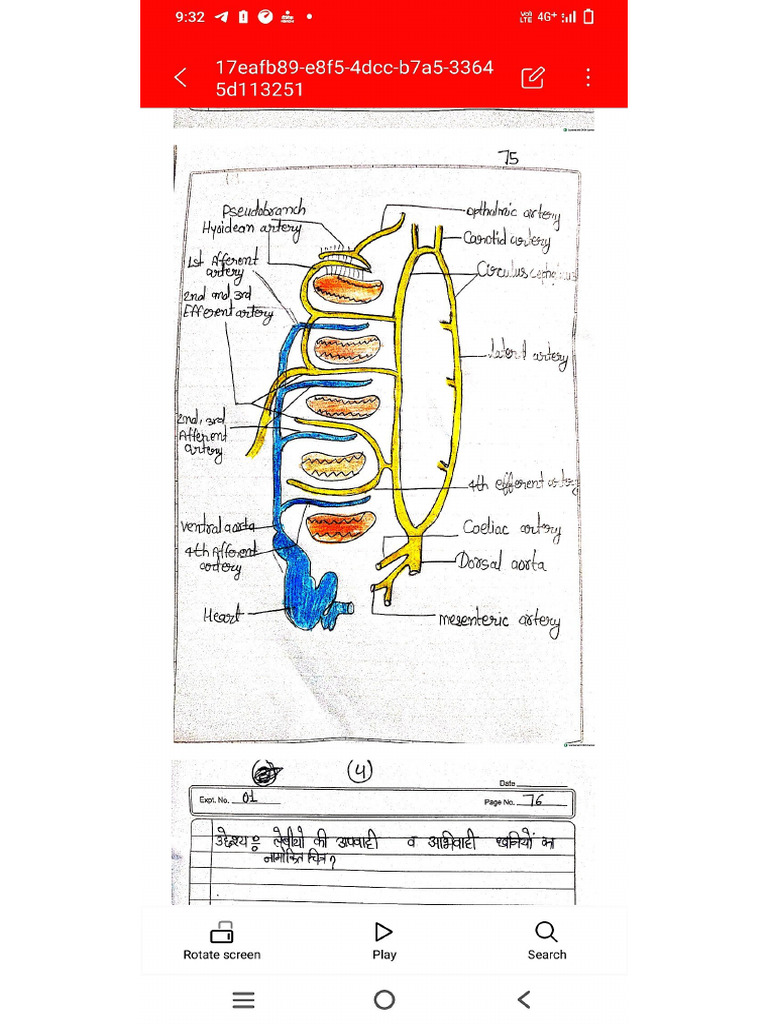 9:32
4G+
17eafb89-e8f5-4dcc-b7a5-3364
5d113251
75
Pseudobranch
Hyoidean artery
1st Afferent
artery
2nd and, 3rd
Efferent artery
2nd, 3rd
Afferent
artery
ventral aorta
4th Afferent
artery
Heart
opthalmic artery
Carotid artery
Circulus
lateral artery
4th efferent artery
Coeliac artery
Dorsal aorta
mesenteric artery
(4)
Date
Expt. No. 01
Page No. 76
उद्देश्य : लेबीयो की अपवाही व अभिवाही धमनियों का
नामांकित चित्र?
Rotate screen
Play
Search